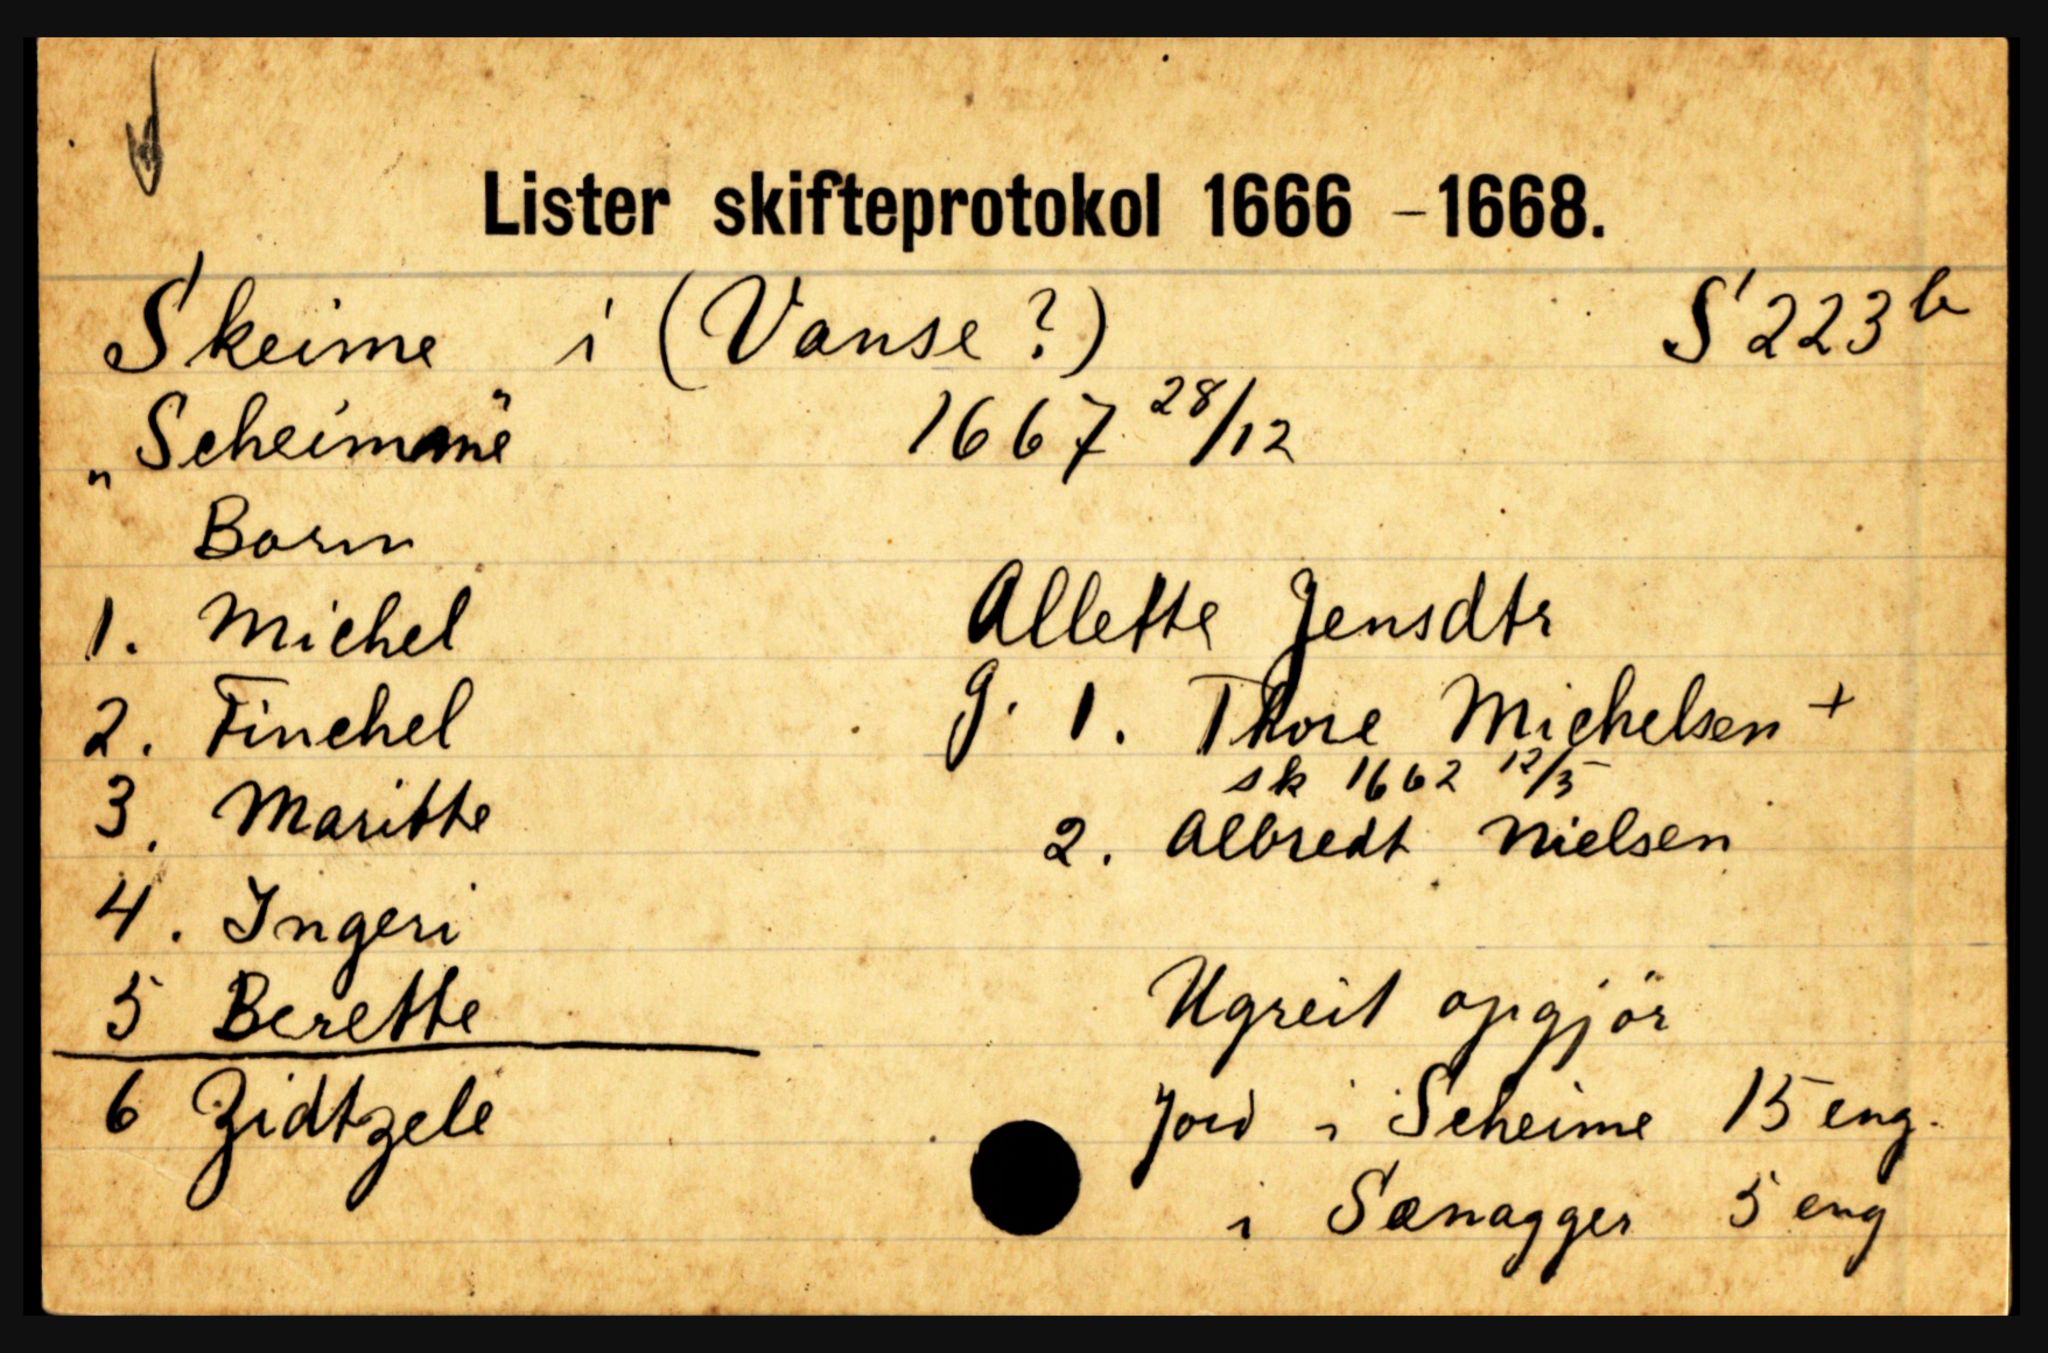 Lister skifteprotokol 1666 – 1668.
Skeime i (Vanse?) S 223b
„Scheimme" 1667 28/12
Born
1. Michel
Allette Jensdtr
2. Finchel
g. 1. Thore Michelsen +
sk 1662 12/5
3. Maritte
2. Albredt Nielsen
4. Ingeri
5 Berette
Ugreit opgjör
6 Zidtzele
Jord i Scheime 15 eng.
i Sænagger 5 eng